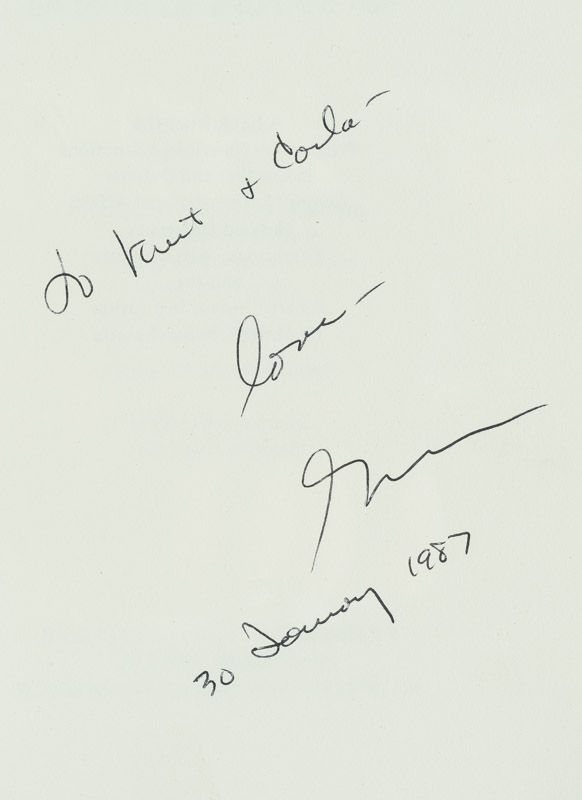 to Kurt & Carla -
love -
30 January 1987